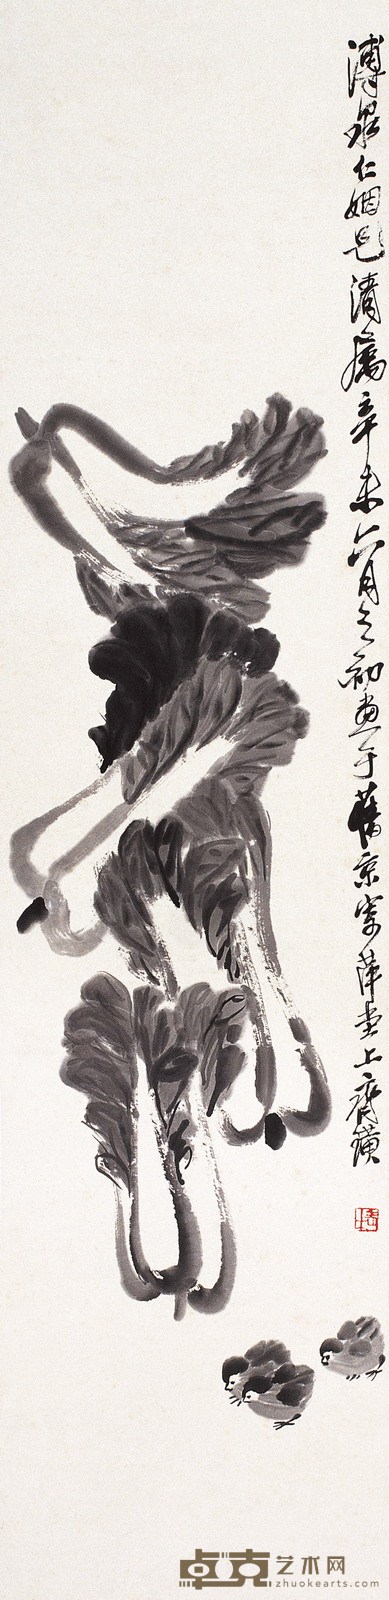 溥泉仁姻兄清属辛未六月之初画于旧京寄萍堂上齐璜
卓克艺术网
zhuokearts.com